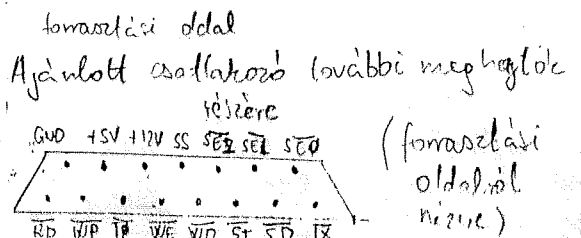 forrasztási oldal
Ajánlott csatlakozó további meghajtók
részére
GND +5V +12V SS SE2 SE1 SE0
(forrasztási
oldalról
nézve)
RD WP T0 WE WD St SD IX